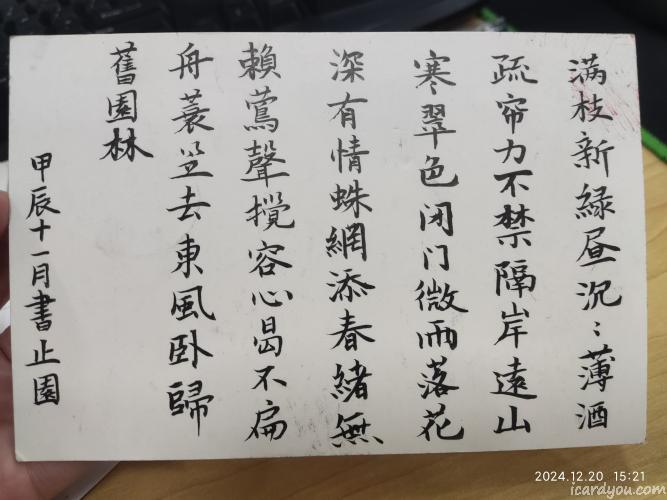 满枝新綠昼沉〻薄酒
疏帘力不禁隔岸遠山
寒翠色闭门微雨落花
深有情蛛網添春緒無
賴鶯聲攪容心曷不扁
舟蓑笠去東風卧歸
舊園林
甲辰十一月書止園
2024.12.20 15:21
icardyou.com